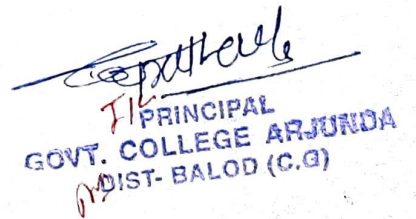 I/C
PRINCIPAL
GOVT. COLLEGE ARJUNDA
DIST- BALOD (C.G)